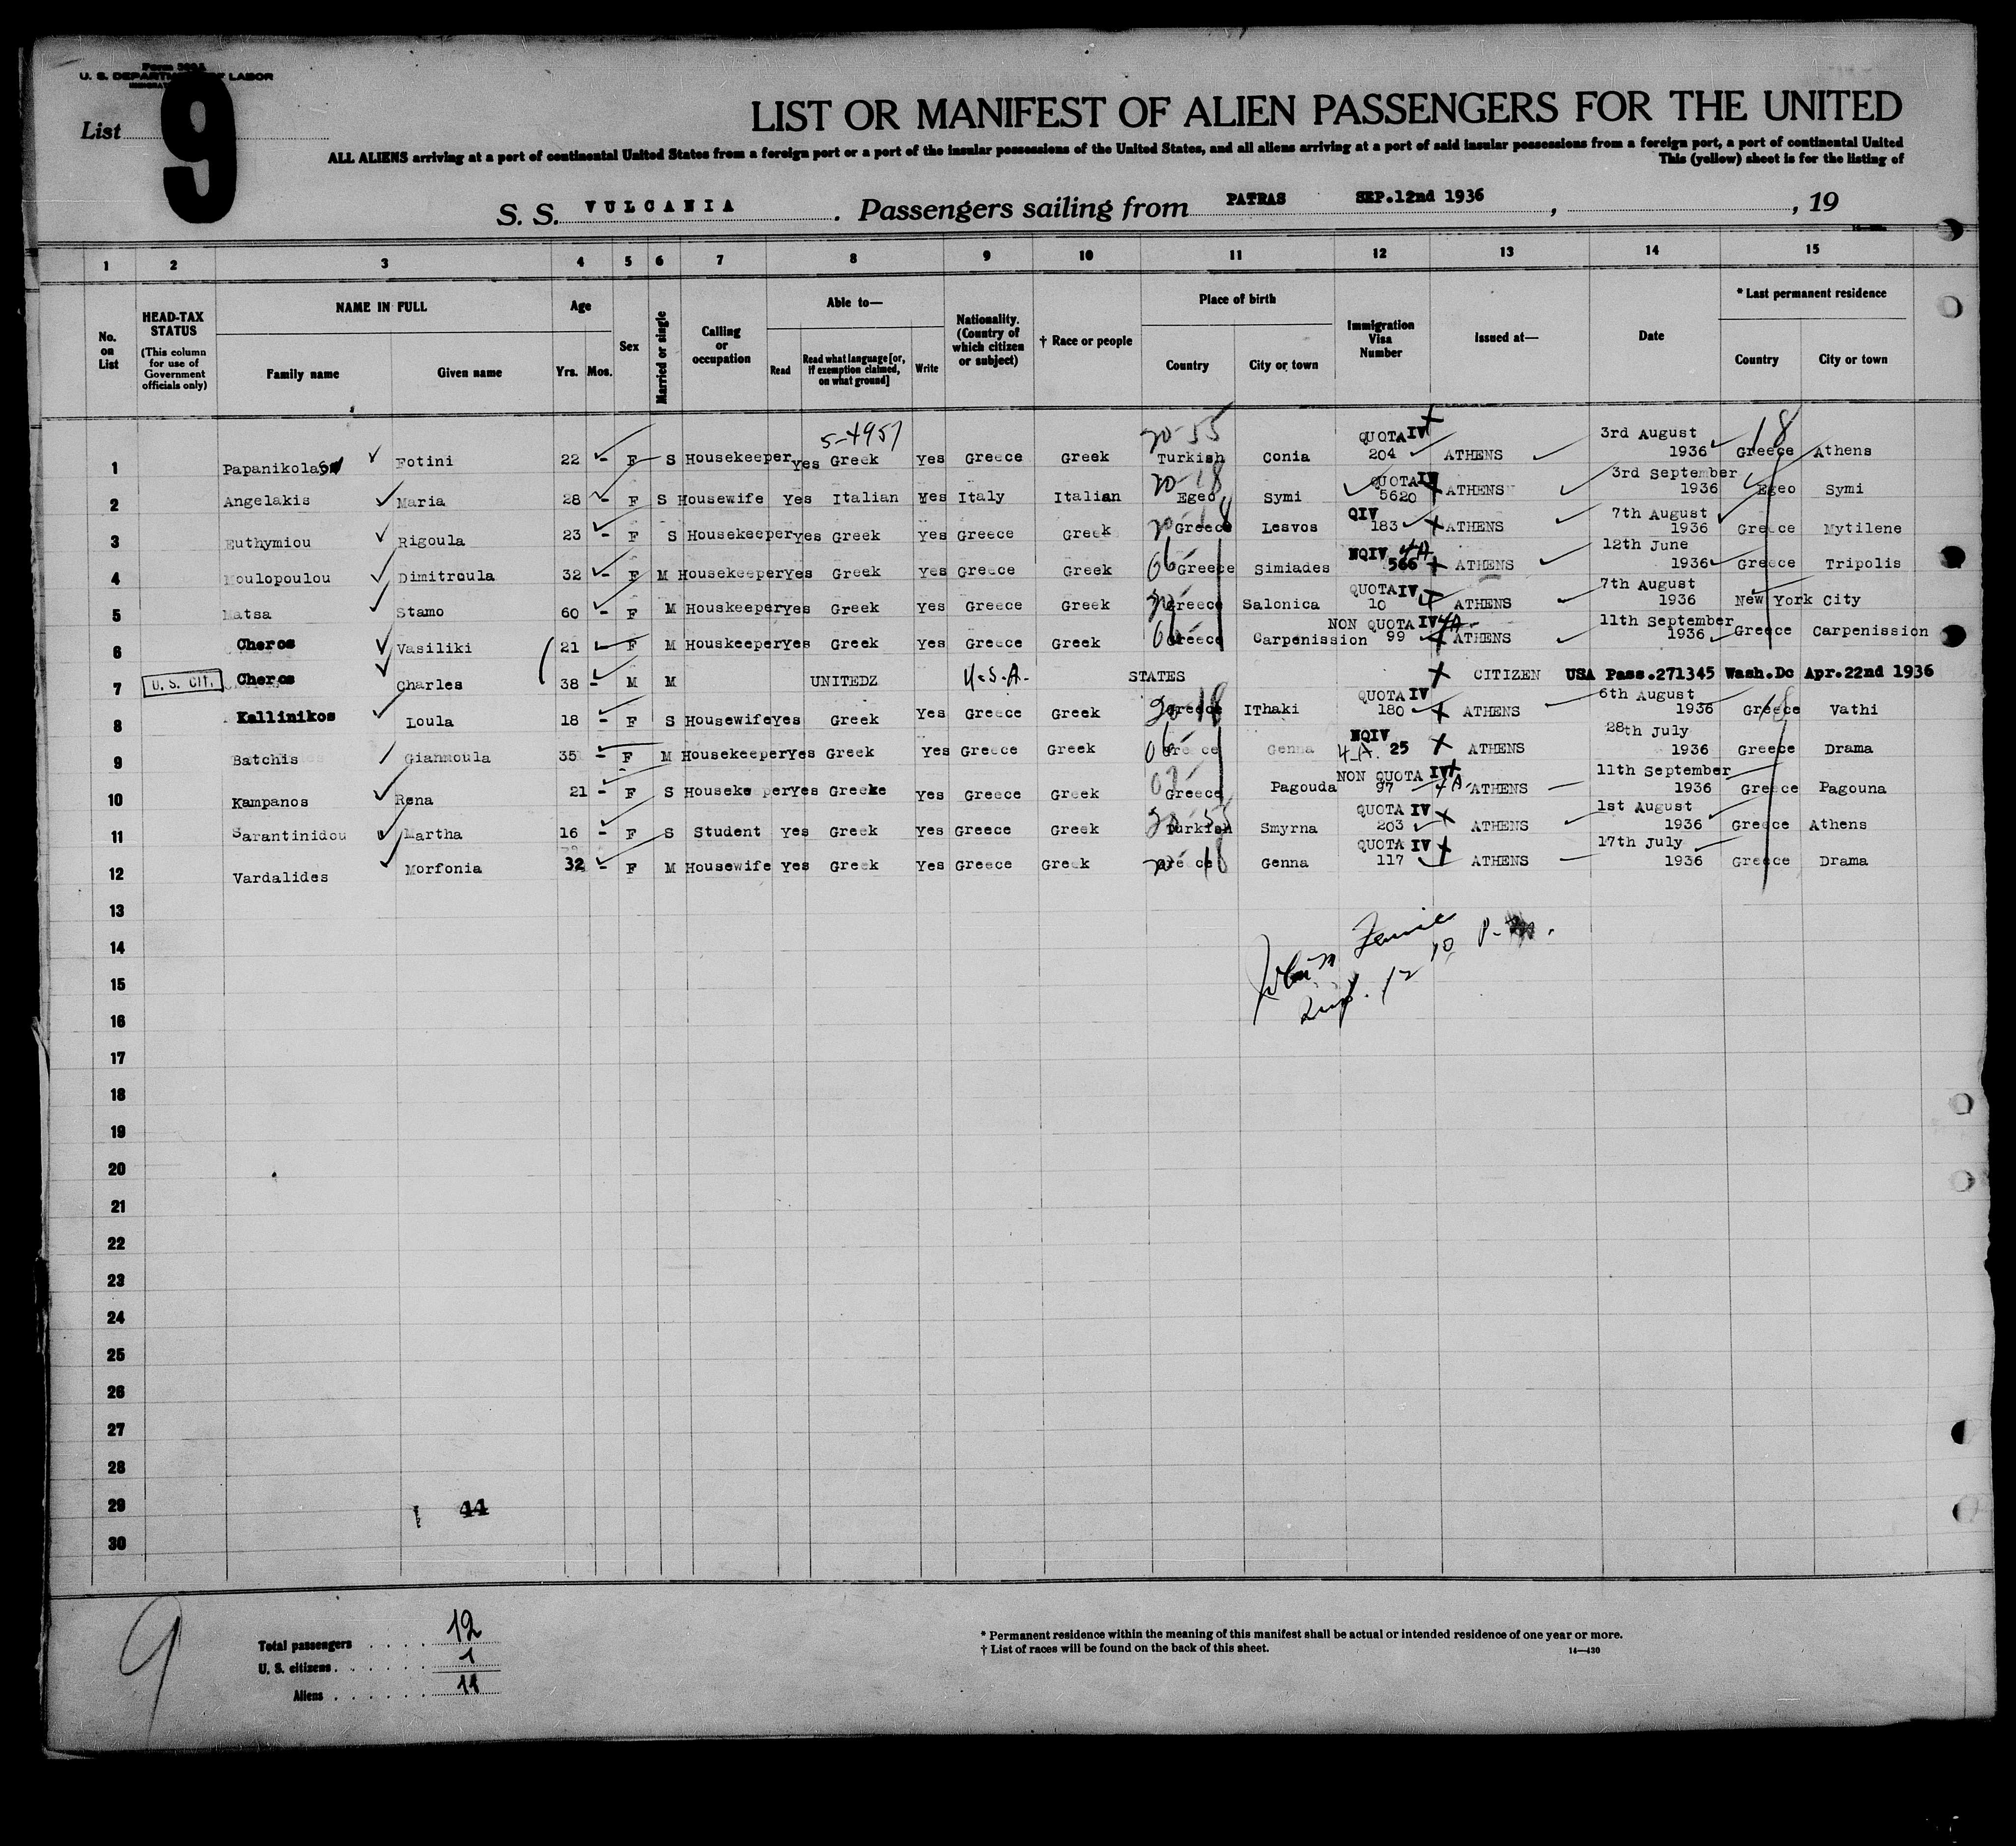 Form 500 A
U. S. DEPARTMENT OF LABOR
List 9
LIST OR MANIFEST OF ALIEN PASSENGERS FOR THE UNITED
ALL ALIENS arriving at a port of continental United States from a foreign port or a port of the insular possessions of the United States, and all aliens arriving at a port of said insular possessions from a foreign port, a port of continental United
This (yellow) sheet is for the listing of
S. S. VULCANIA . Passengers sailing from PATRAS SEP.12nd 1936 , , 19
1 2 3 4 5 6 7 8 9 10 11 12 13 14 15
No. on List
HEAD-TAX STATUS (This column for use of Government officials only)
NAME IN FULL Family name Given name
Age Yrs. Mos.
Sex
Married or single
Calling or occupation
Able to— Read Read what language [or, if exemption claimed, on what ground] Write
Nationality. (Country of which citizen or subject)
† Race or people
Place of birth Country City or town
Immigration Visa Number
Issued at—
Date
* Last permanent residence Country City or town
5-4957 20-55 18
1 Papanikolaou Fotini 22 - F S Housekeeper Yes Greek Yes Greece Greek Turkish Conia QUOTA IV 204 ATHENS 3rd August 1936 Greece Athens
2 Angelakis Maria 28 - F S Housewife Yes Italian Yes Italy Italian 20-18 Egeo Symi QUOTA IV 5620 ATHENS 3rd September 1936 Egeo Symi
3 Euthymiou Rigoula 23 - F S Housekeeper yes Greek Yes Greece Greek Greece Lesvos QIV 183 ATHENS 7th August 1936 Greece Mytilene
4 Moulopoulou Dimitroula 32 - F M Housekeeper Yes Greek Yes Greece Greek 06 Greece Simiades NQIV 4A 566 ATHENS 12th June 1936 Greece Tripolis
5 Matsa Stamo 60 - F M Houskeeper yes Greek Yes Greece Greek Greece Salonica QUOTA IV 10 ATHENS 7th August 1936 New York City
6 Cheros Vasiliki 21 F M Houskeeper Yes Greek Yes Greece Greek 06 Greece Carpenission NON QUOTA IV 4A 99 ATHENS 11th September 1936 Greece Carpenission
7 U. S. Cit. Cheros Charles 38 - M M UNITEDZ U.S.A. STATES CITIZEN USA Pass.271345 Wash.Dc Apr.22nd 1936
8 Kallinikos Loula 18 - F S Housewife Yes Greek Yes Greece Greek 20 18 Greece IThaki QUOTA IV 180 ATHENS 6th August 1936 Greece Vathi
9 Batchis Gianmoula 35 - F M Housekeeper Yes Greek Yes Greece Greek 06 Greece Genna NQIV 4-A. 25 ATHENS 28th July 1936 Greece Drama
10 Kampanos Rena 21 - F S Housekeeper Yes Greeke Yes Greece Greek Greece Pagouda NON QUOTA IV 97 4A ATHENS 11th September 1936 Greece Pagouna
11 Sarantinidou Martha 16 - F S Student Yes Greek Yes Greece Greek 20-55 Turkish Smyrna QUOTA IV 203 ATHENS 1st August 1936 Greece Athens
12 Vardalides Morfonia 32 - F M Housewife Yes Greek Yes Greece Greek 20 18 Greece Genna QUOTA IV 117 ATHENS 17th July 1936 Greece Drama
13
14
15
16
17
18
19
20
21
22
23
24
25
26
27
28
29 44
30
9
Total passengers . . . . 12
U. S. citizens . . . . . . 1
Aliens . . . . . . 11
* Permanent residence within the meaning of this manifest shall be actual or intended residence of one year or more.
† List of races will be found on the back of this sheet.
14—430